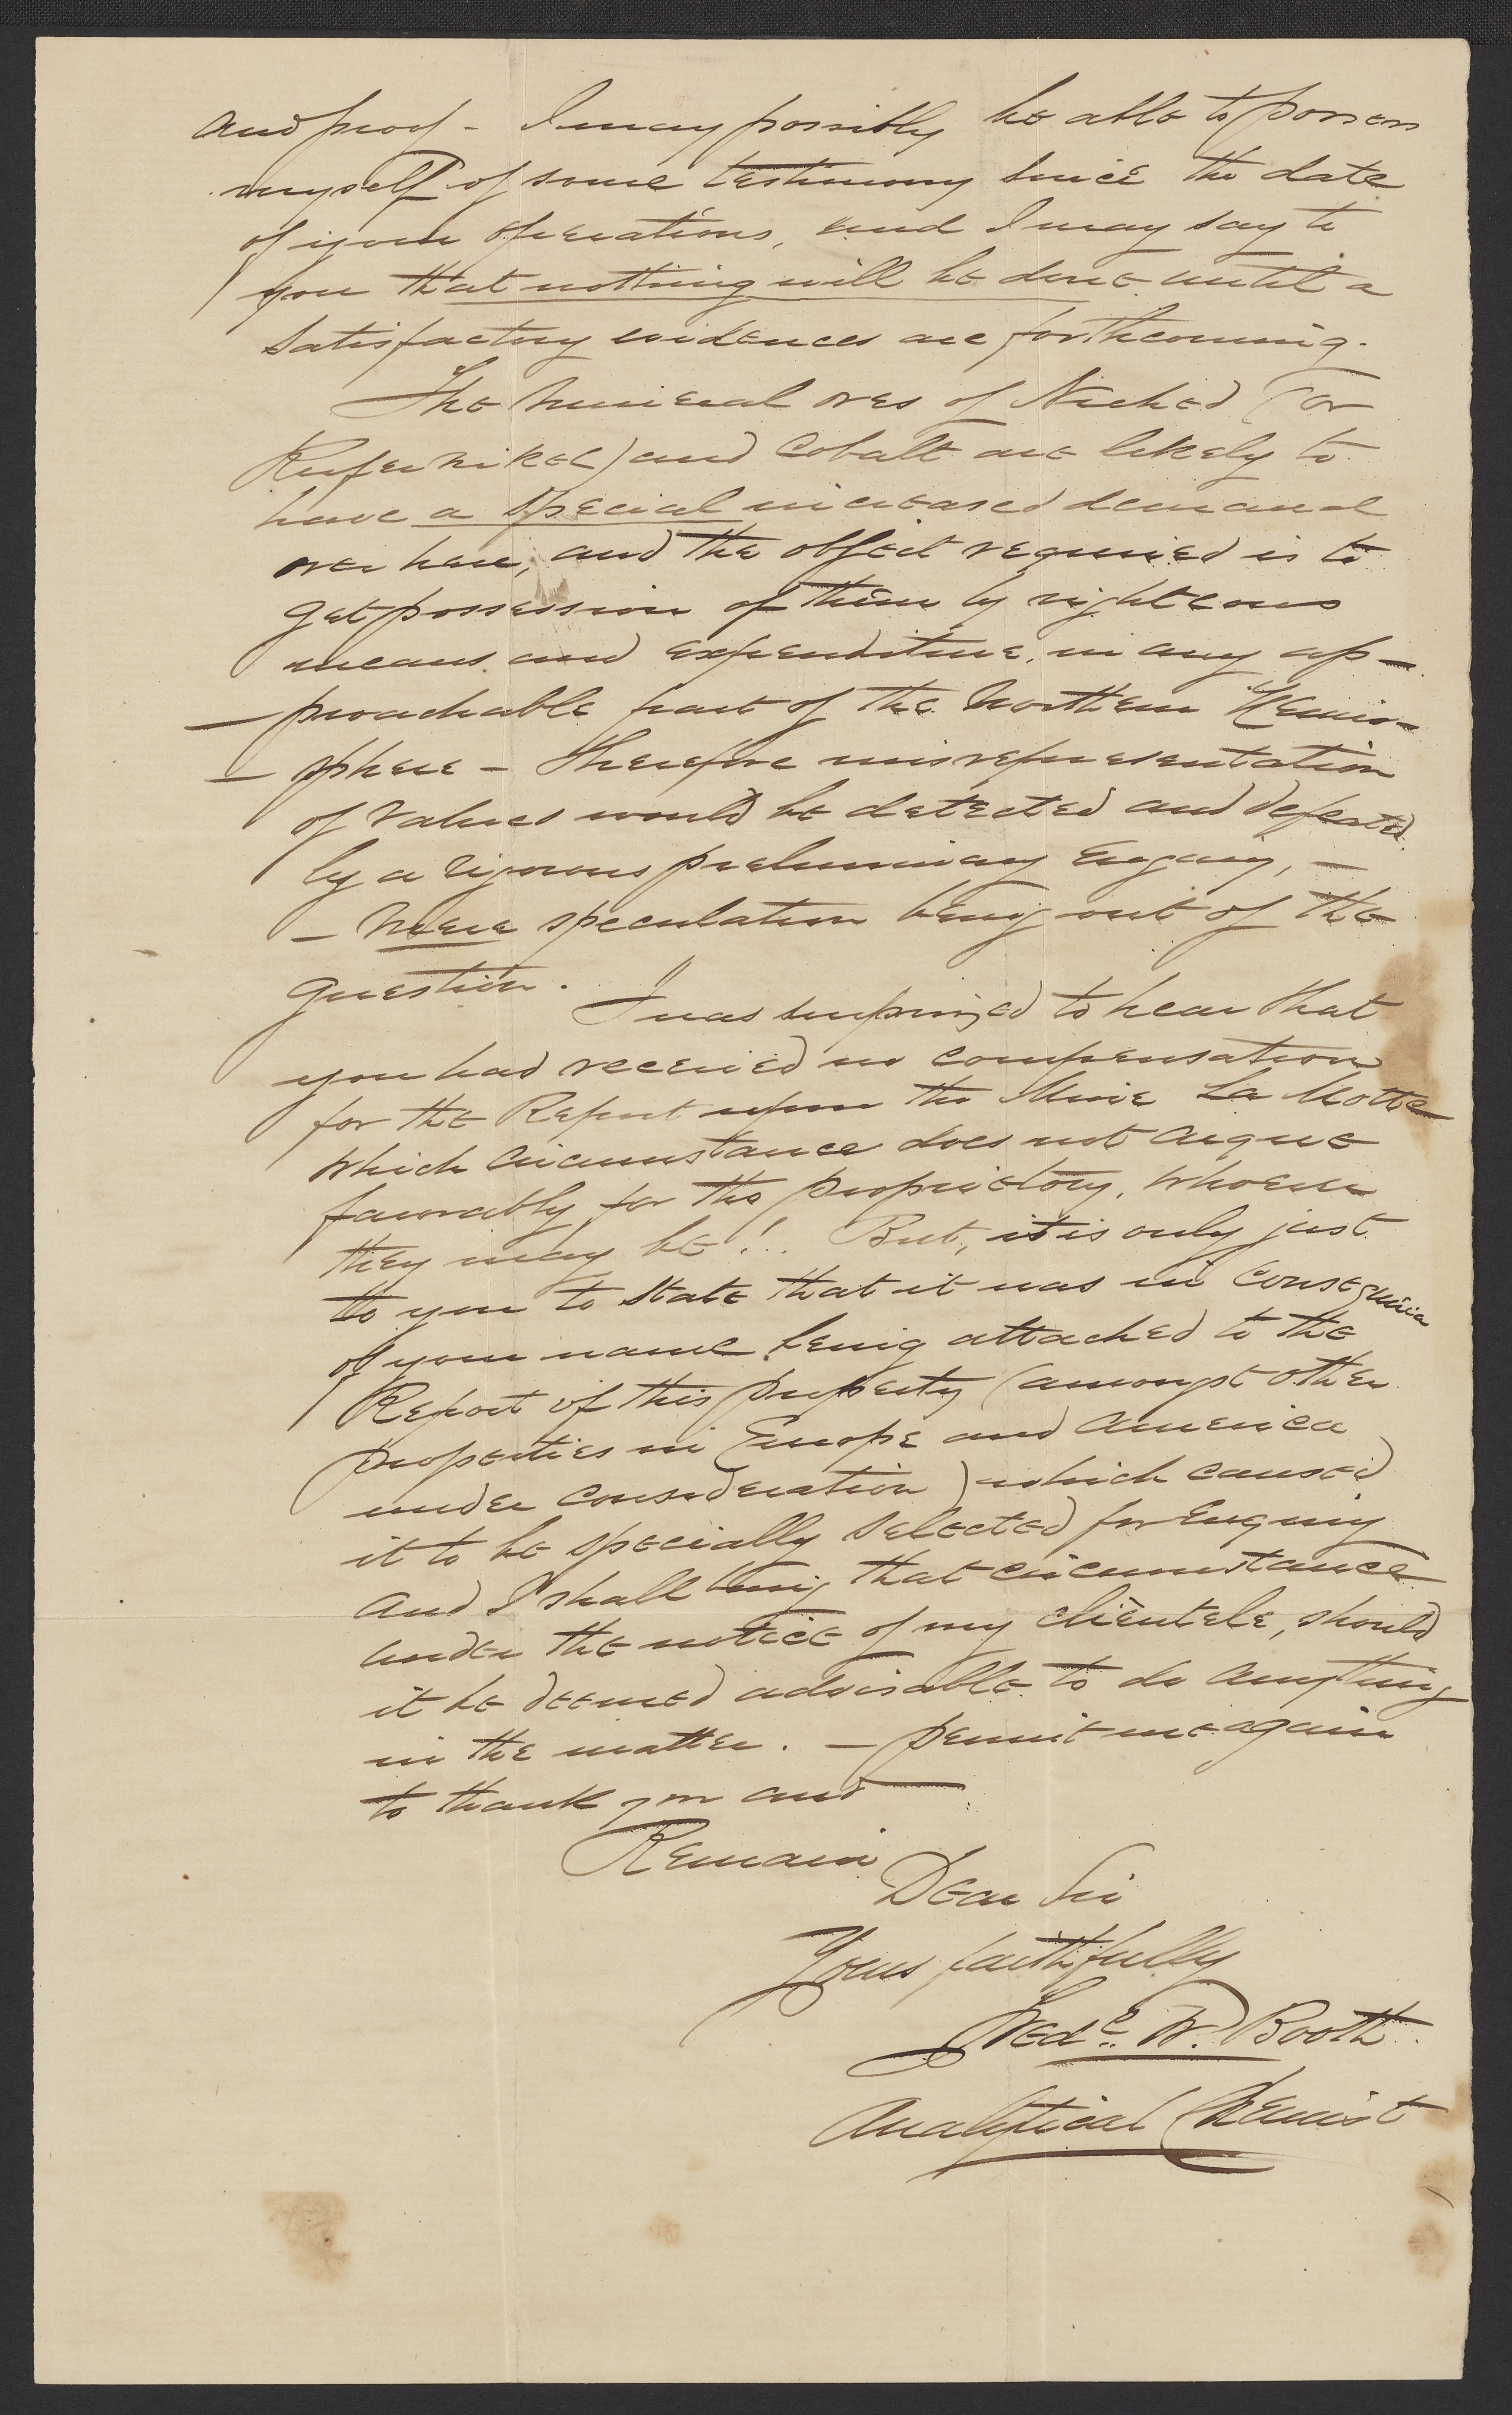 and proof - I may possibly be able to possess
myself of some testimony since the date
of your operations, and I may say to
you that nothing will be done until a
satisfactory evidences are forthcoming.
The mineral ores of Nickel (or
Kupfernikel) and Cobalt are likely to
have a special increased demand
over here, and the object required is to
get possession of them by righteous
means and expenditure, in any ap-
-proachable part of the Northern Hemis-
-phere - Therefore misrepresentation
of values would be detected and defeated
by a rigorous preliminary Enquiry, -
- Mere speculation being out of the
question.
I was surprized to hear that
you had received no compensation
for the Report upon the Mine La Motte
which circumstance does not argue
favorably for the proprietory, whoever
they may be! . But, it is only just
to you to state that it was in consequence
of your name being attached to the
Report of this property (amongst other
properties in Europe and America
under consideration) which caused
it to be specially selected for Enquiry
and I shall bring that circumstance
under the notice of my clientele, should
it be deemed advisable to do anything
in the matter. - permit me again
to thank you and
Remain
Dear Sir
Yours faithfully
Fredc. W. Booth
Analytical Chemist